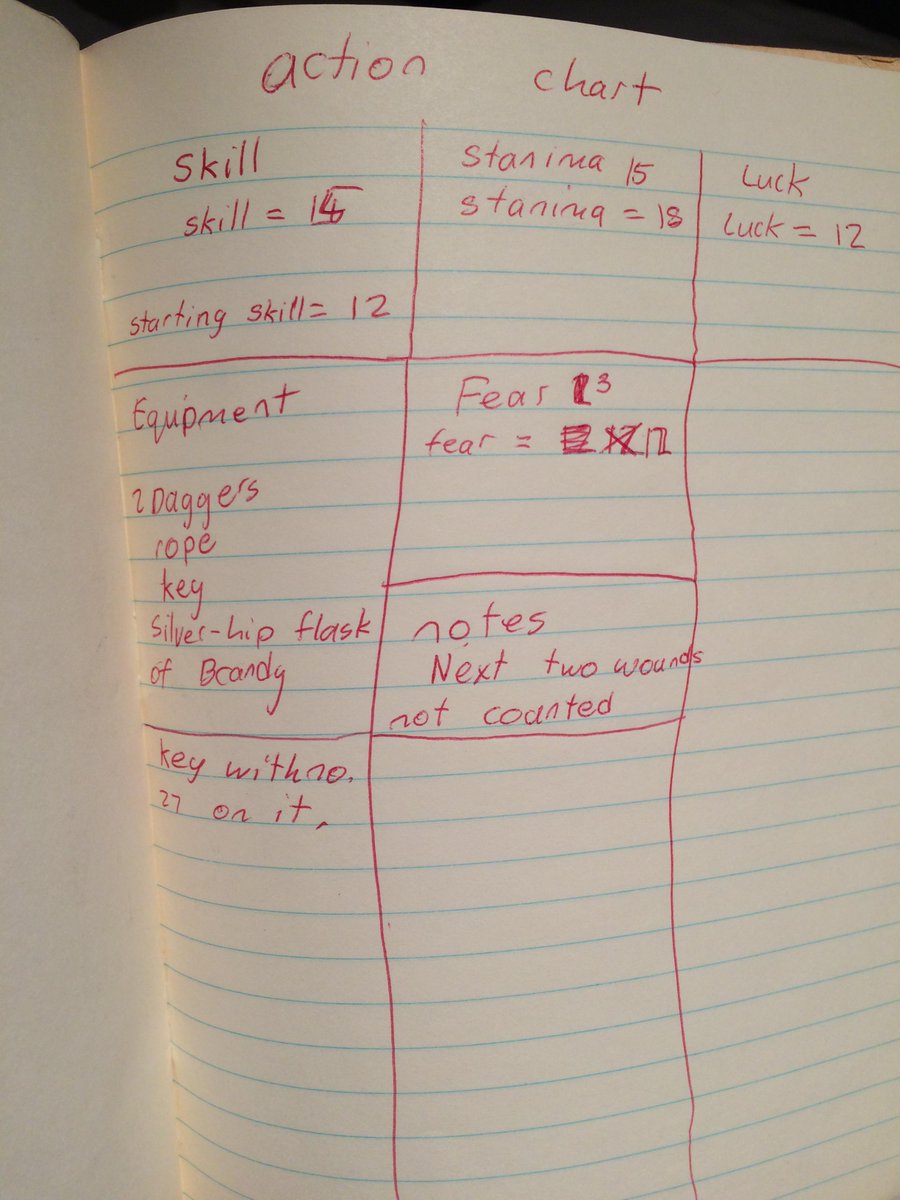 action chart
Skill
skill = 15
starting skill = 12
Stanima 15
stanima = 18
Luck
Luck = 12
Equipment
2 Daggers
rope
key
Silver-hip flask
of Brandy
key with no.
27 on it.
Fear 3
fear = 12
notes
Next two wounds
not counted